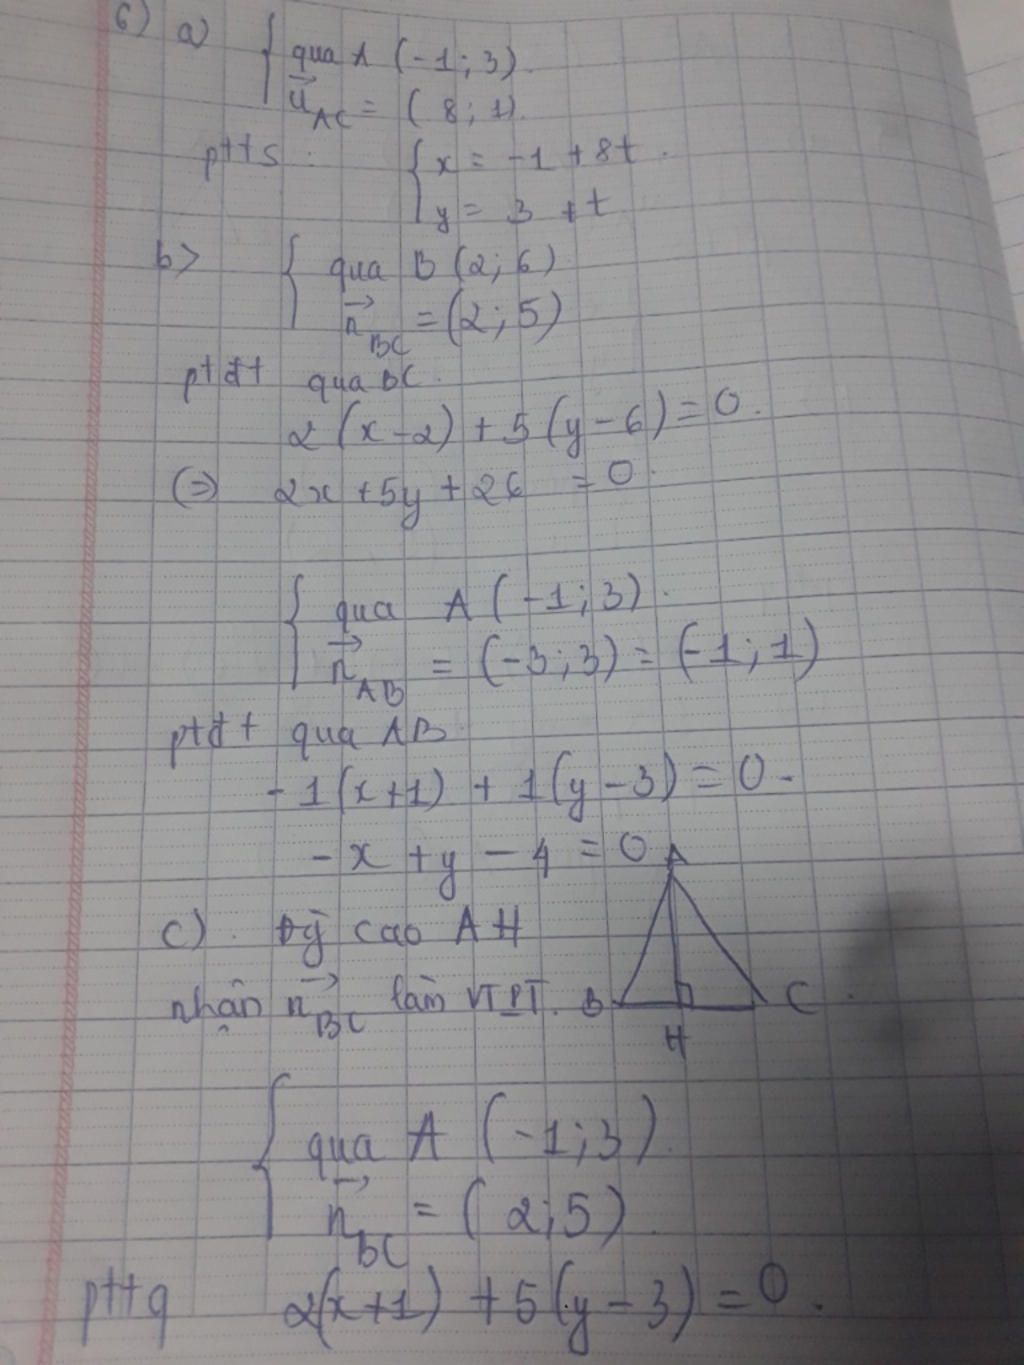 6) a) { qua A (-1; 3).
u⃗_AC = (8; 1)
ptts: { x = -1 + 8t.
y = 3 + t
b> { qua B (2; 6)
n⃗_BC = (2; 5)
ptđt qua BC.
2(x-2) + 5(y-6) = 0.
(=) 2x + 5y + 26 = 0.
{ qua A (-1; 3).
n⃗_AB = (-3; 3) = (-1; 1)
ptđt qua AB.
-1(x+1) + 1(y-3) = 0.
-x + y - 4 = 0
A
c). cao AH
nhận n⃗_BC làm VTPT.
B C
H
{ qua A (-1; 3).
n⃗_BC = (2; 5).
pttq 2(x+1) + 5(y-3) = 0.